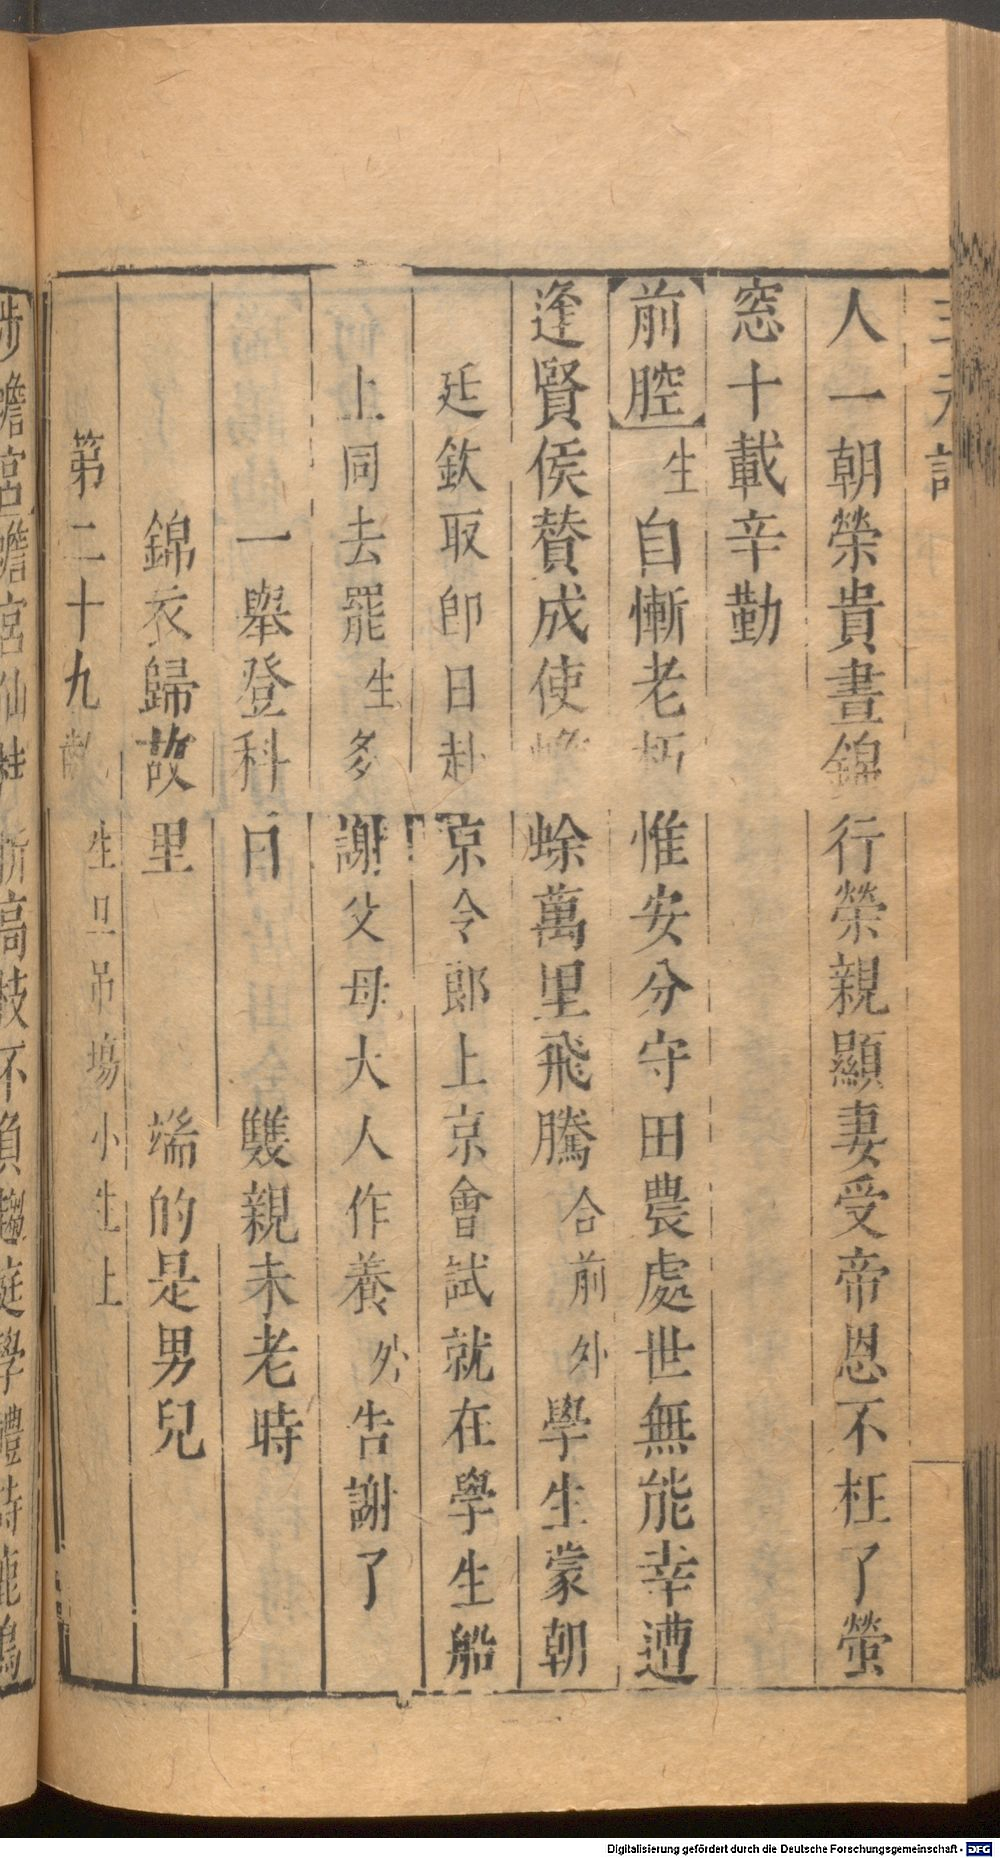 三元記
人一朝榮貴晝錦行榮親顯妻受帝恩不枉了螢
窓十載辛勤
前腔生自慚老朽惟安分守田農處世無能幸遭
逢賢侯賛成使蟾蜍萬里飛騰合前外學生蒙朝
廷欽取卽日赴京令郎上京會試就在學生船
上同去罷生多謝父母大人作養外告謝了
一舉登科日 雙親未老時
錦衣歸故里 端的是男兒
第二十九齣 生旦吊塲小生上
步蟾宮蟾宮仙桂折高枝不負趨庭學禮詩鹿鳴
Digitalisierung gefördert durch die Deutsche Forschungsgemeinschaft - DFG